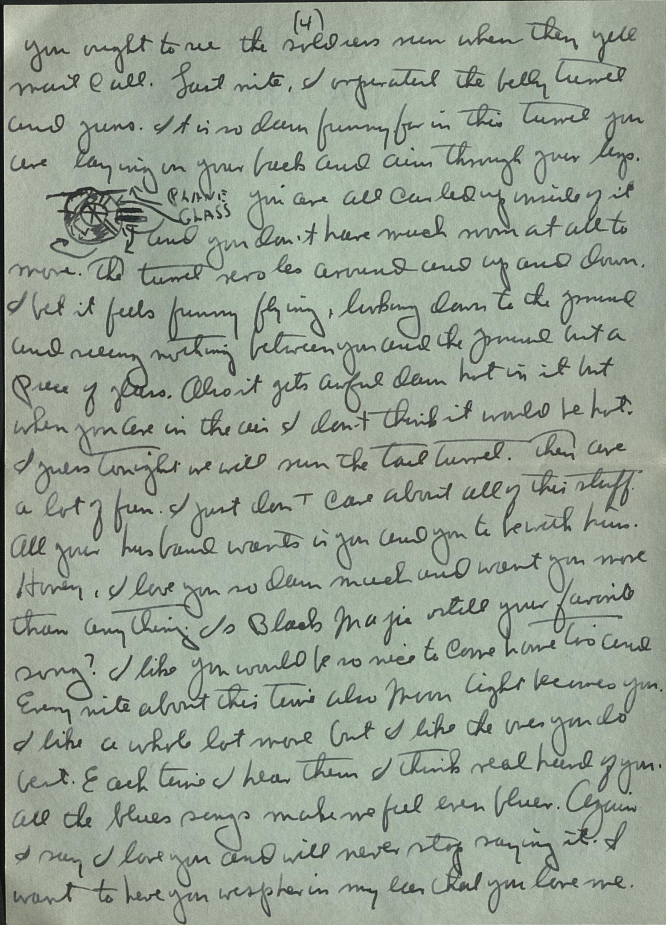 (4)
you ought to see the soldiers run when they yell
mail call. Last nite, I operated the belly turret
and guns. It is so darn funny for in this turret you
are laying on your back and aim through your legs.
PLANE
GLASS
you are all curled up inside of it
and you don't have much room at all to
move. The turret revolves around and up and down.
I bet it feels funny flying, looking down to the ground
and seeing nothing between you and the ground but a
piece of glass. Also it gets awful darn hot in it but
when you are in the air I don't think it would be hot.
I guess tonight we will run the tail turret. They are
a lot of fun. I just don't care about all of this stuff.
All your husband wants is you and you to be with him.
Honey, I love you so darn much and want you more
than anything. Is Black Magic still your favorite
song? I like you would be so nice to come home too and
Every nite about this time also Moon light becomes you.
I like a whole lot more but I like the ones you do
best. Each time I hear them I think real hard of you.
all the blues songs make me feel even bluer. Again
I say, I love you and will never stop saying it. I
want to have you whispher in my ear that you love me.